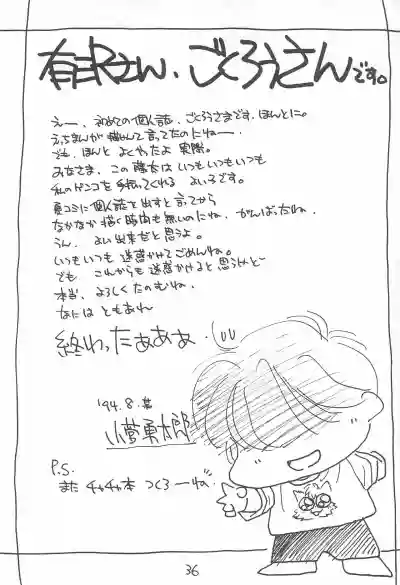 有沢さん、ごくろうさんです。
えー、初めての個人誌、ごくろうさまです。ほんとに。
えっちまんが描けんて言ってたのにねー。
でも、ほんと よくやったよ 実際。
みなさま、この 藤太は いつもいつもいつも
私のゲンコを手伝ってくれる よい子です。
夏コミに個人誌を出すと言ってから
なかなか描く時間も無いのにね、がんばったね。
うん、よい出来だと思うよ。
いつもいつも 迷惑かけてごめんね。
でも これからも 迷惑かけると思うけどー
本当、よろしくたのむね。
なには ともあれー
終わったぁぁぁ.
'94.8.
小菅勇太郎
P.S.
また チャチャ本 つくろーね。
36